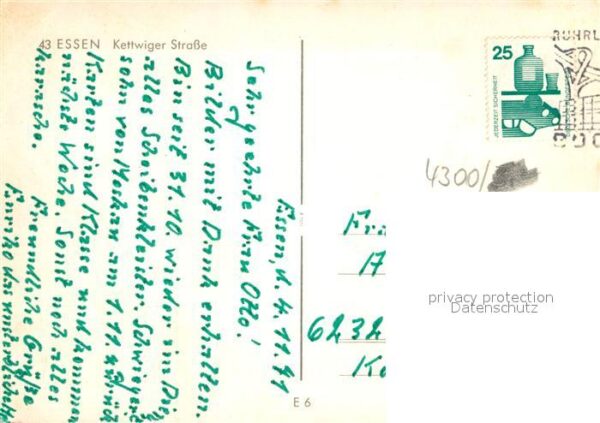 43 ESSEN Kettwiger Straße
Essen, d. 4.11.71
Sehr geehrte Frau Otto!
Bilder mit Dank erhalten.
Bin seit 31.10. wieder in
alles Scheibenkleister. Schwieger-
sohn von am 1.11. zurück
Karten sind Klasse und kommen
nächste Woche. Sonst noch alles
Freundliche Grüße
25
JEDERZEIT SICHERHEIT
RUHRL
4300/
Fr
6232
privacy protection
Datenschutz
E 6